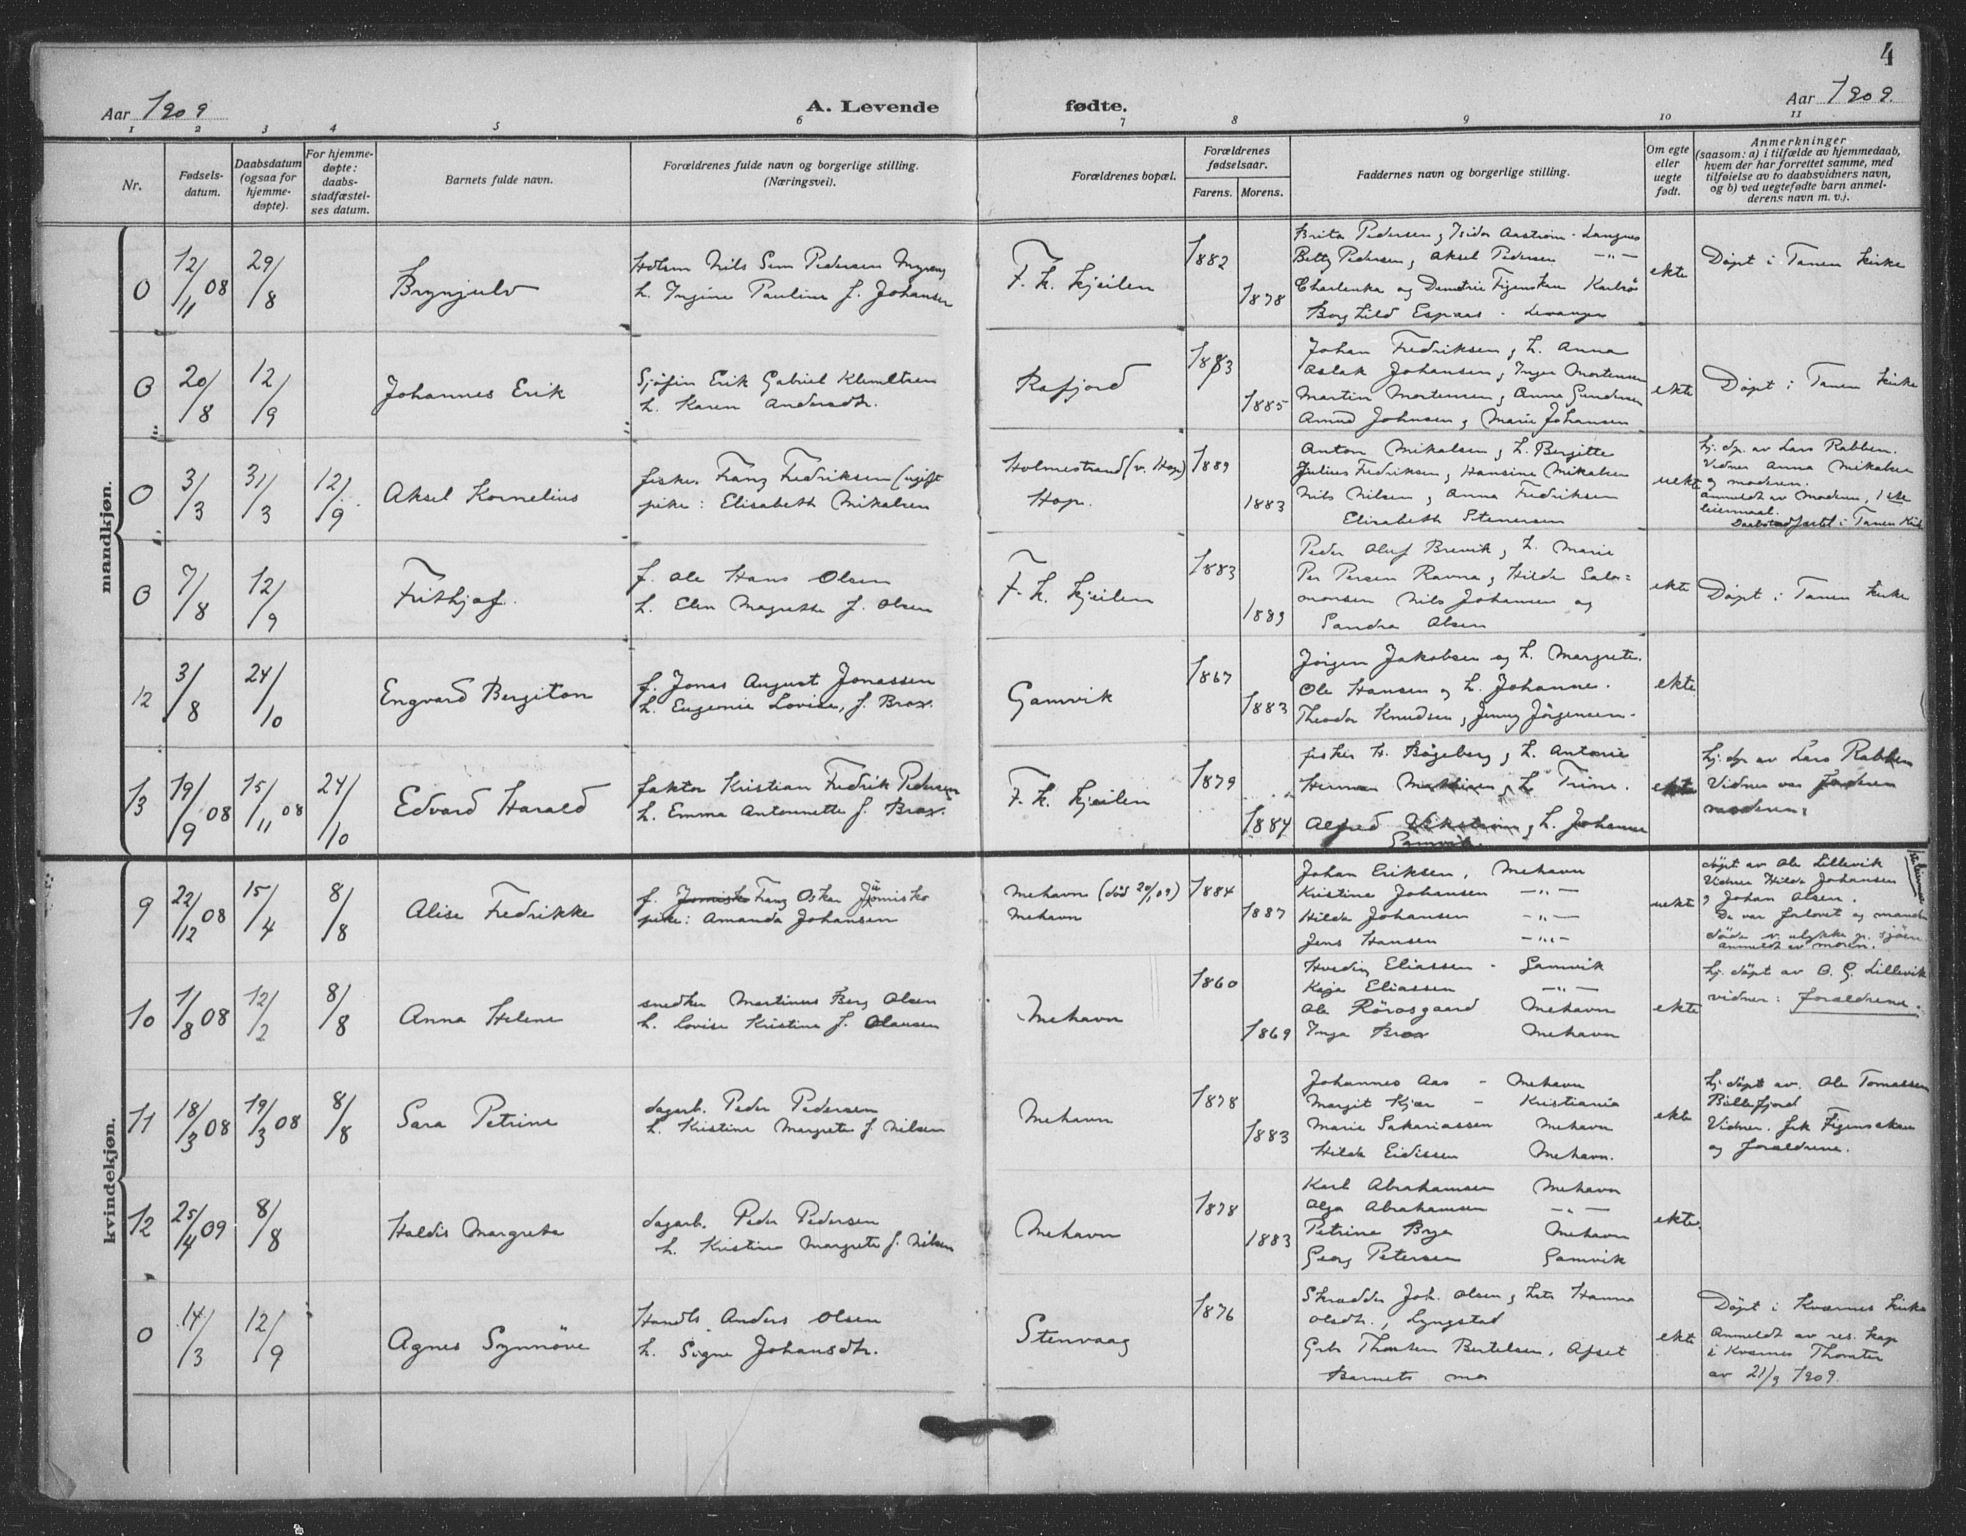 4
Aar 1909
A. Levende fødte.
Aar 1909.
1 2 3 4 5 6 7 8 9 10 11
Nr.
Fødsels-
datum.
Daabsdatum
(ogsaa for
hjemme-
døpte).
For hjemme-
døpte:
daabs-
stadfæstel-
ses datum.
Barnets fulde navn.
Forældrenes fulde navn og borgerlige stilling.
(Næringsvei).
Forældrenes bopæl.
Forældrenes
fødselsaar.
Farens. Morens.
Faddernes navn og borgerlige stilling.
Om egte
eller
uegte
født.
Anmerkninger
(saasom: a) i tilfælde av hjemmedaab,
hvem der har forrettet samme, med
tilføielse av to daabsvidners navn,
og b) ved uegtefødte barn anmel-
derens navn m. v.).
mandkjøn.
0 12/11 08 29/8
Brynjulv
Nils Sem Pedersen
h. Ingine Pauline f. Johansen
F. h. Kjeilen
1882
1878
Brita Pedersen, Isidor Aastrøm - Langnes
Betty Pedersen, Aksel Pedersen -"-
og Demetrie Figenskau Karlsø
Borghild Espaas - Levanger
ekte
Døpt i Tanen kirke
0 20/8 12/9
Johannes Erik
Erik Gabriel Klemetsen
h. Karen Andersdtr.
Rafjord
1883
1885
Johan Fredriksen, h. Anna
Aslak Johansen, Inger Mortensen
Martin Mortensen, Anna Gundersen
Amund Johnsen, Marie Johansen
ekte
Døpt i Tanen kirke
0 3/3 31/3 12/9
Aksel Kornelius
fisker Franz Fredriksen (ugift
pike: Elisabeth Mikalsen
Holmestrand (v. Hop)
Hop.
1889
1883
Anton Mikalsen, h. Bergitte
Julius Fredriksen, Hansine Mikalsen
Nils Nilsen, Anna Fredriksen
Elisabeth Stenersen
uekte
hj. dp. av Lars Rabben.
Vidner Anna Mikalsen
og moderen.
anmeldt av Moderen, 1ste
leiermaal.
Daabstadfæstet i Tanen Kirke
0 7/8 12/9
Frithjof.
f. Ole Hans Olsen
h. Elen Magrethe f. Olsen
F. h. Kjeilen
1883
1889
Peder Oluf Brevik, h. Marie
Per Persen Ravna, Hilda Salo=
monsen Nils Johansen og
Sandra Olsen
ekte
Døpt i Tanen kirke
12 3/8 24/10
Engvard Bergiton
f. Jonas August Jonassen
h. Eugenie Lovise, f. Brox.
Gamvik
1867
1883
Jörgen Jakobsen og h. Margrete.
Ole Hansen og h. Johanne.
Theodor Knudsen, Jenny Jörgensen.
ekte
13 19/9 08 15/11 08 24/10
Edvard Harald
faktor Kristian Fredrik Pedersen
h. Emma Antonette f. Brox.
F. h. Kjeilen
1879
1884
fisker H. Bögeberg, h. Antonie
Herman Mathisen, h. Trine.
Alfred Vikström, h. Johanna
Gamvik.
ekte
hj. dp. av Lars Rabben
Vidner var Faderen
moderen.
kvindekjøn.
9 22/12 08 15/4 8/8
Alise Fredrikke
f. Jomisko Franz Oskar Jömisko
pike: Amanda Johansen
Mehavn (død 20/1 09)
Mehavn
1884
1887
Johan Eriksen, Mehavn
Kristine Johansen -"-
Hilda Johansen -"-
Jens Hansen -"-
uekte
døpt av Ole Lillevik
Vidner Hilda Johansen
og Johan Olsen.
De var forlovet og manden
døde v. ulykke p. sjøen
anmeldt av moren.
10 1/8 08 12/2 8/8
Anna Helene
snedker Martinus Berg Olsen
h. Lovise Kristine f. Olausen
Mehavn
1860
1869
Hveding Eliassen - Gamvik
Kaja Eliassen -"-
Ole Rörosgaard Mehavn
Inga Brox Mehavn
ekte
hj. døpt av O. G. Lillevik
vidner: foraldrene.
11 18/3 08 19/3 08 8/8
Sara Petrine
dagarb. Peder Pedersen
h. Kristine Margrete f. Nilsen
Mehavn
1878
1883
Johannes Aas - Mehavn
Margit Kjær - Kristiania
Marie Sakariassen Mehavn
Hilda Eidissen Mehavn.
ekte
hj. døpt av. Ole Tomassen
Billefjord
Vidner. frk Figenskau
og foraldrene.
12 25/4 09 8/8
Haldis Margreta
dagarb. Peder Pedersen
h. Kristine Margrete f. Nilsen
Mehavn
1878
1883
Karl Abrahamsen Mehavn
Olga Abrahamsen -"-
Petrine Mehavn
Georg Petersen Gamvik
ekte.
0 14/3 12/9
Agnes Synnöve
Handls. Anders Olsen
h. Signe Johansdtr.
Stenvaag
1876
Skrædder Joh. Olsen, Hanna
Olsdtr., Lyngstad
Grb. Thorsten Bertelsen, Ofset
Barnets mor
ekte
Døpt i Kværnes kirke
Anmeldt av res. kap
i Kværnes
av 21/9 1909.